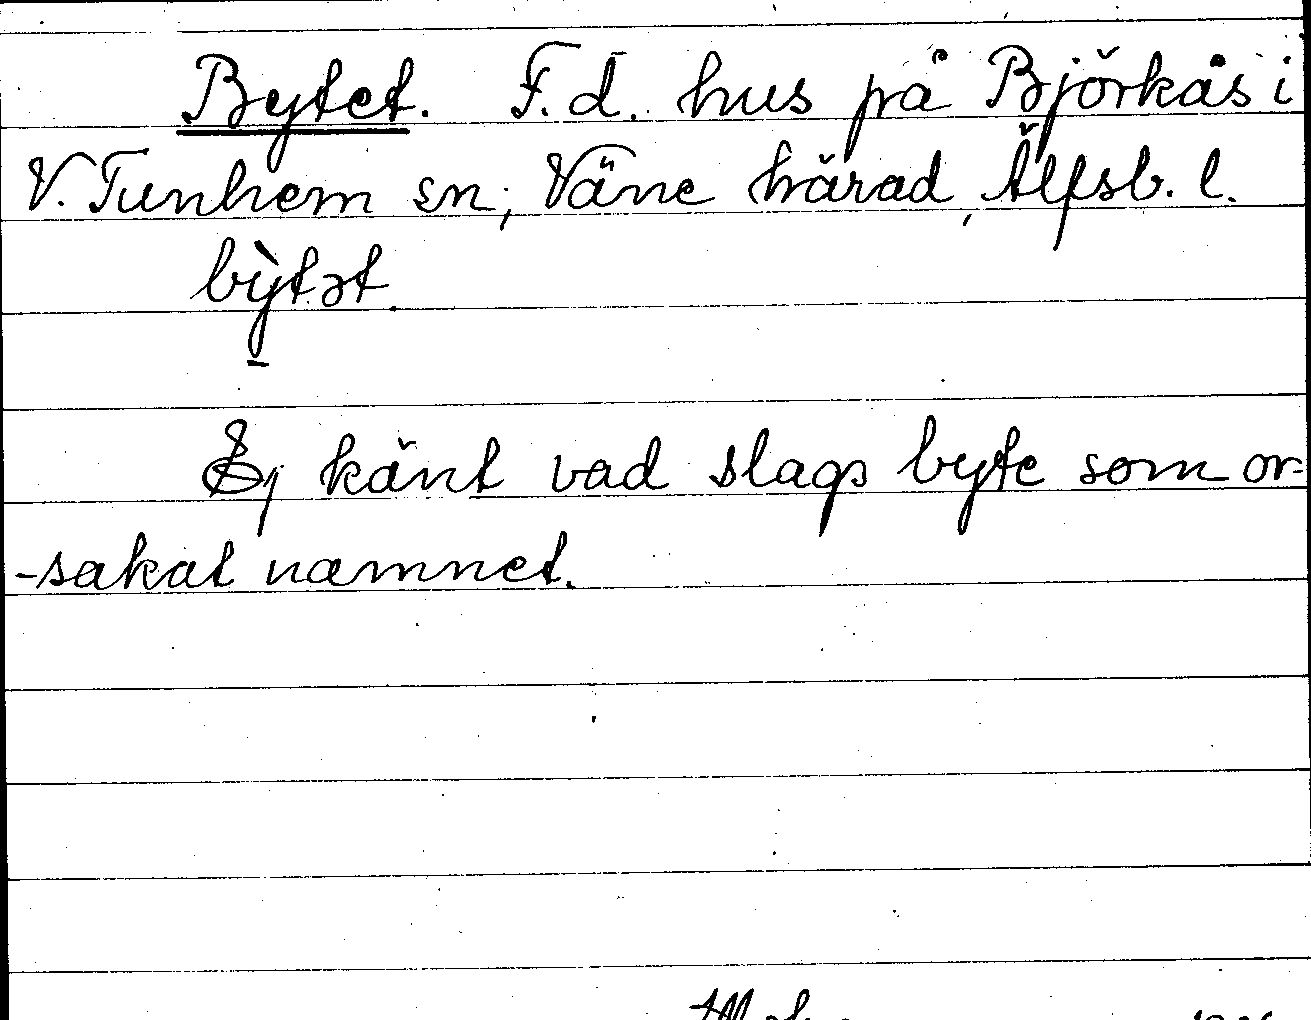 Bytet. F.d. hus på Björkås i
V. Tunhem sn, Väne härad, Älfsb. l.
bỳtət.
Ej känt vad slags byte som or-
-sakat namnet.